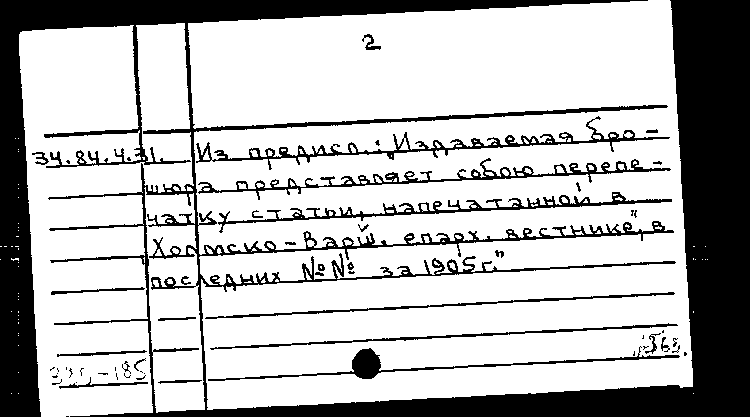 2
34.84.4.31. Из предисл.: „Издаваемая бро-
шюра представляет собою перепе-
чатку статьи, напечатанной в
„Холмско-Варш. епарх. вестнике", в
последних №№ за 1905 г."